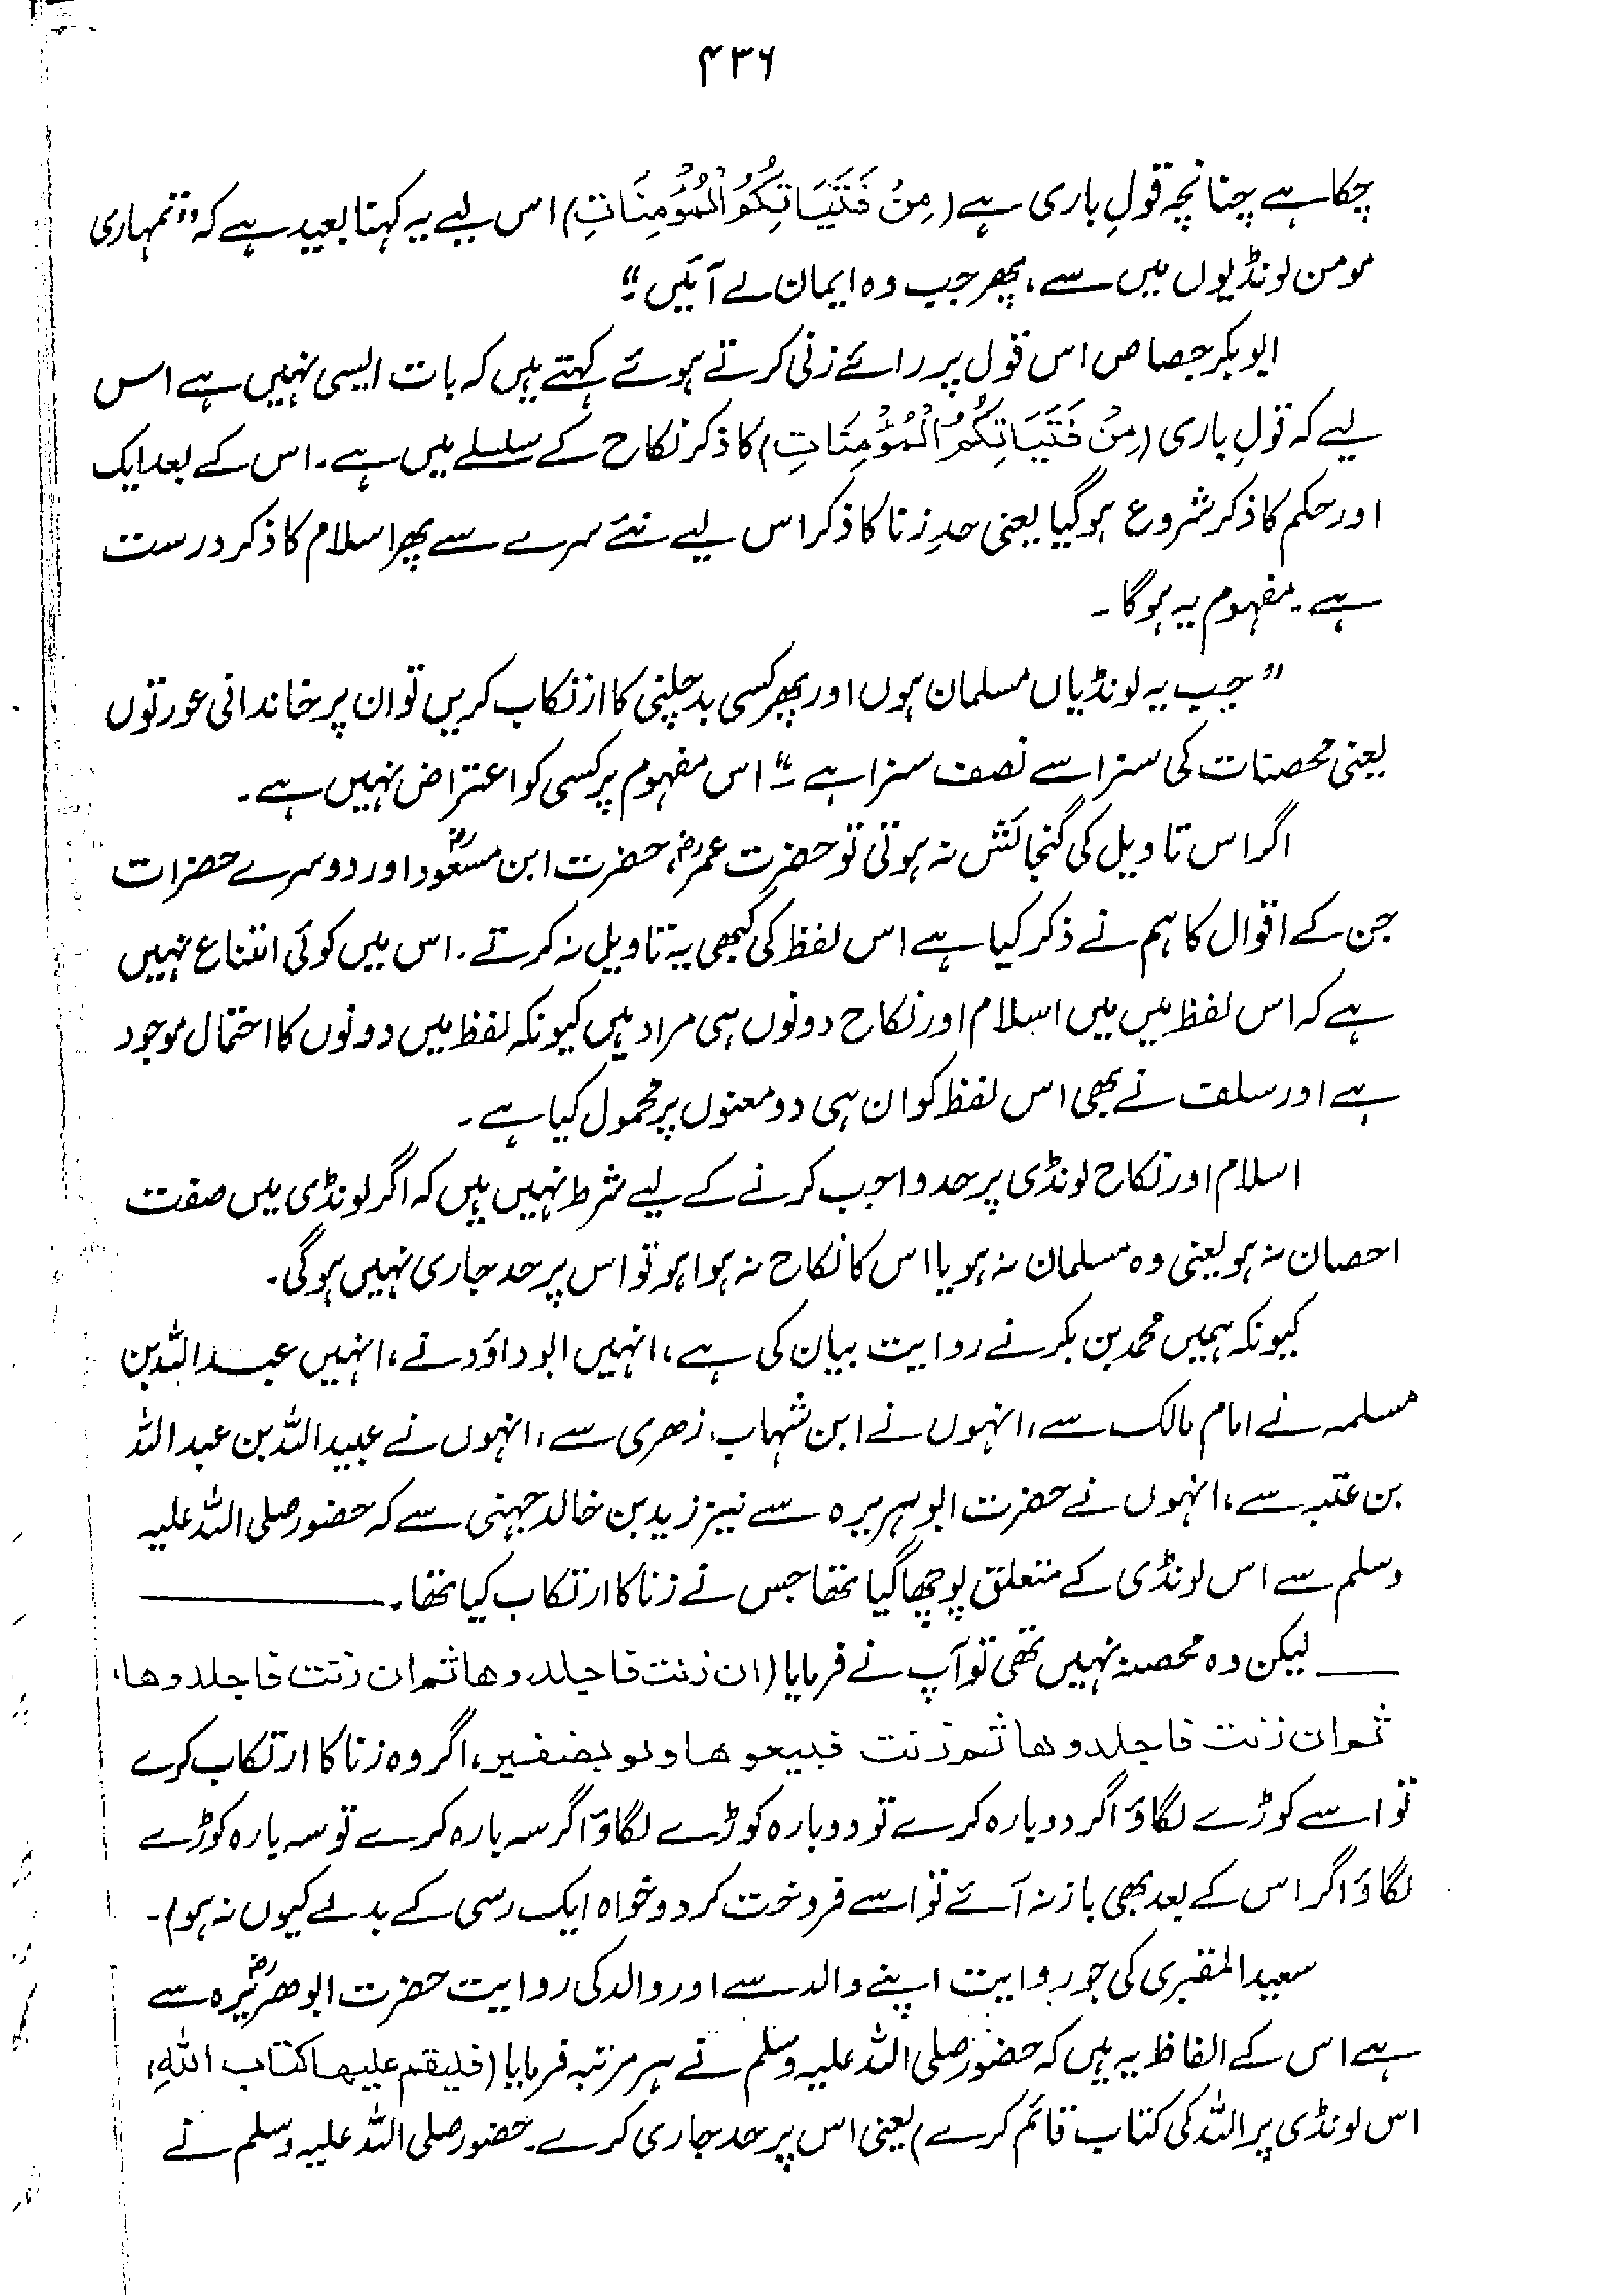 ۴۳۶
چکا ہے چنانچہ قولِ باری ہے (مِنْ فَتَيَاتِكُمُ الْمُؤْمِنَاتِ) اس لیے یہ کہنا بعید ہے کہ "تمہاری
مومن لونڈیوں میں سے، پھر جب وہ ایمان لے آئیں۔"
ابوبکر جصاص اس قول پر رائے زنی کرتے ہوئے کہتے ہیں کہ بات ایسی نہیں ہے اس
لیے کہ قولِ باری (مِنْ فَتَيَاتِكُمُ الْمُؤْمِنَاتِ) کا ذکر نکاح کے سلسلے میں ہے۔ اس کے بعد ایک
اور حکم کا ذکر شروع ہوگیا یعنی حدِ زنا کا ذکر اس لیے نئے سرے سے پھر اسلام کا ذکر درست
ہے۔ مفہوم یہ ہوگا۔
"جب یہ لونڈیاں مسلمان ہوں اور پھر کسی بدچلنی کا ارتکاب کریں تو ان پر خاندانی عورتوں
یعنی محصنات کی سزا سے نصف سزا ہے۔" اس مفہوم پر کسی کو اعتراض نہیں ہے۔
اگر اس تاویل کی گنجائش نہ ہوتی تو حضرت عمرؓ، حضرت ابن مسعودؓ اور دوسرے حضرات
جن کے اقوال کا ہم نے ذکر کیا ہے اس لفظ کی کبھی یہ تاویل نہ کرتے۔ اس میں کوئی امتناع نہیں
ہے کہ اس لفظ میں میں اسلام اور نکاح دونوں ہی مراد ہیں کیونکہ لفظ میں دونوں کا احتمال موجود
ہے اور سلف نے بھی اس لفظ کو ان ہی دو معنوں پر محمول کیا ہے۔
اسلام اور نکاح لونڈی پر حد واجب کرنے کے لیے شرط نہیں ہیں کہ اگر لونڈی میں صفت
احصان نہ ہو یعنی وہ مسلمان نہ ہو یا اس کا نکاح نہ ہوا ہو تو اس پر حد جاری نہیں ہوگی۔
کیونکہ ہمیں محمد بن بکر نے روایت بیان کی ہے، انہیں ابوداؤد نے، انہیں عبداللہ بن
مسلمہ نے امام مالک سے، انہوں نے ابن شہاب زھری سے، انہوں نے عبیداللہ بن عبداللہ
بن عتبہ سے، انہوں نے حضرت ابوہریرہ سے نیز زید بن خالد جہنی سے کہ حضور صلی اللہ علیہ
وسلم سے اس لونڈی کے متعلق پوچھا گیا تھا جس نے زنا کا ارتکاب کیا تھا۔
لیکن وہ محصنہ نہیں تھی تو آپ نے فرمایا (ان زنت فاجلدوھا ثم ان زنت فاجلدوھا،
ثم ان زنت فاجلدوھا ثم زنت فبیعوھا ولو بضفیر، اگر وہ زنا کا ارتکاب کرے
تو اسے کوڑے لگاؤ اگر دوبارہ کرے تو دوبارہ کوڑے لگاؤ اگر سہ بارہ کرے تو سہ بارہ کوڑے
لگاؤ اگر اس کے بعد بھی باز نہ آئے تو اسے فروخت کر دو خواہ ایک رسی کے بدلے کیوں نہ ہو)۔
سعید المقبری کی جو روایت اپنے والد سے اور والد کی روایت حضرت ابوھریرہؓ سے
ہے اس کے الفاظ یہ ہیں کہ حضور صلی اللہ علیہ وسلم نے ہر مرتبہ فرمایا (فلیقم علیھا کتاب اللہِ،
اس لونڈی پر اللہ کی کتاب قائم کرے) یعنی اس پر حد جاری کرے۔ حضور صلی اللہ علیہ وسلم نے